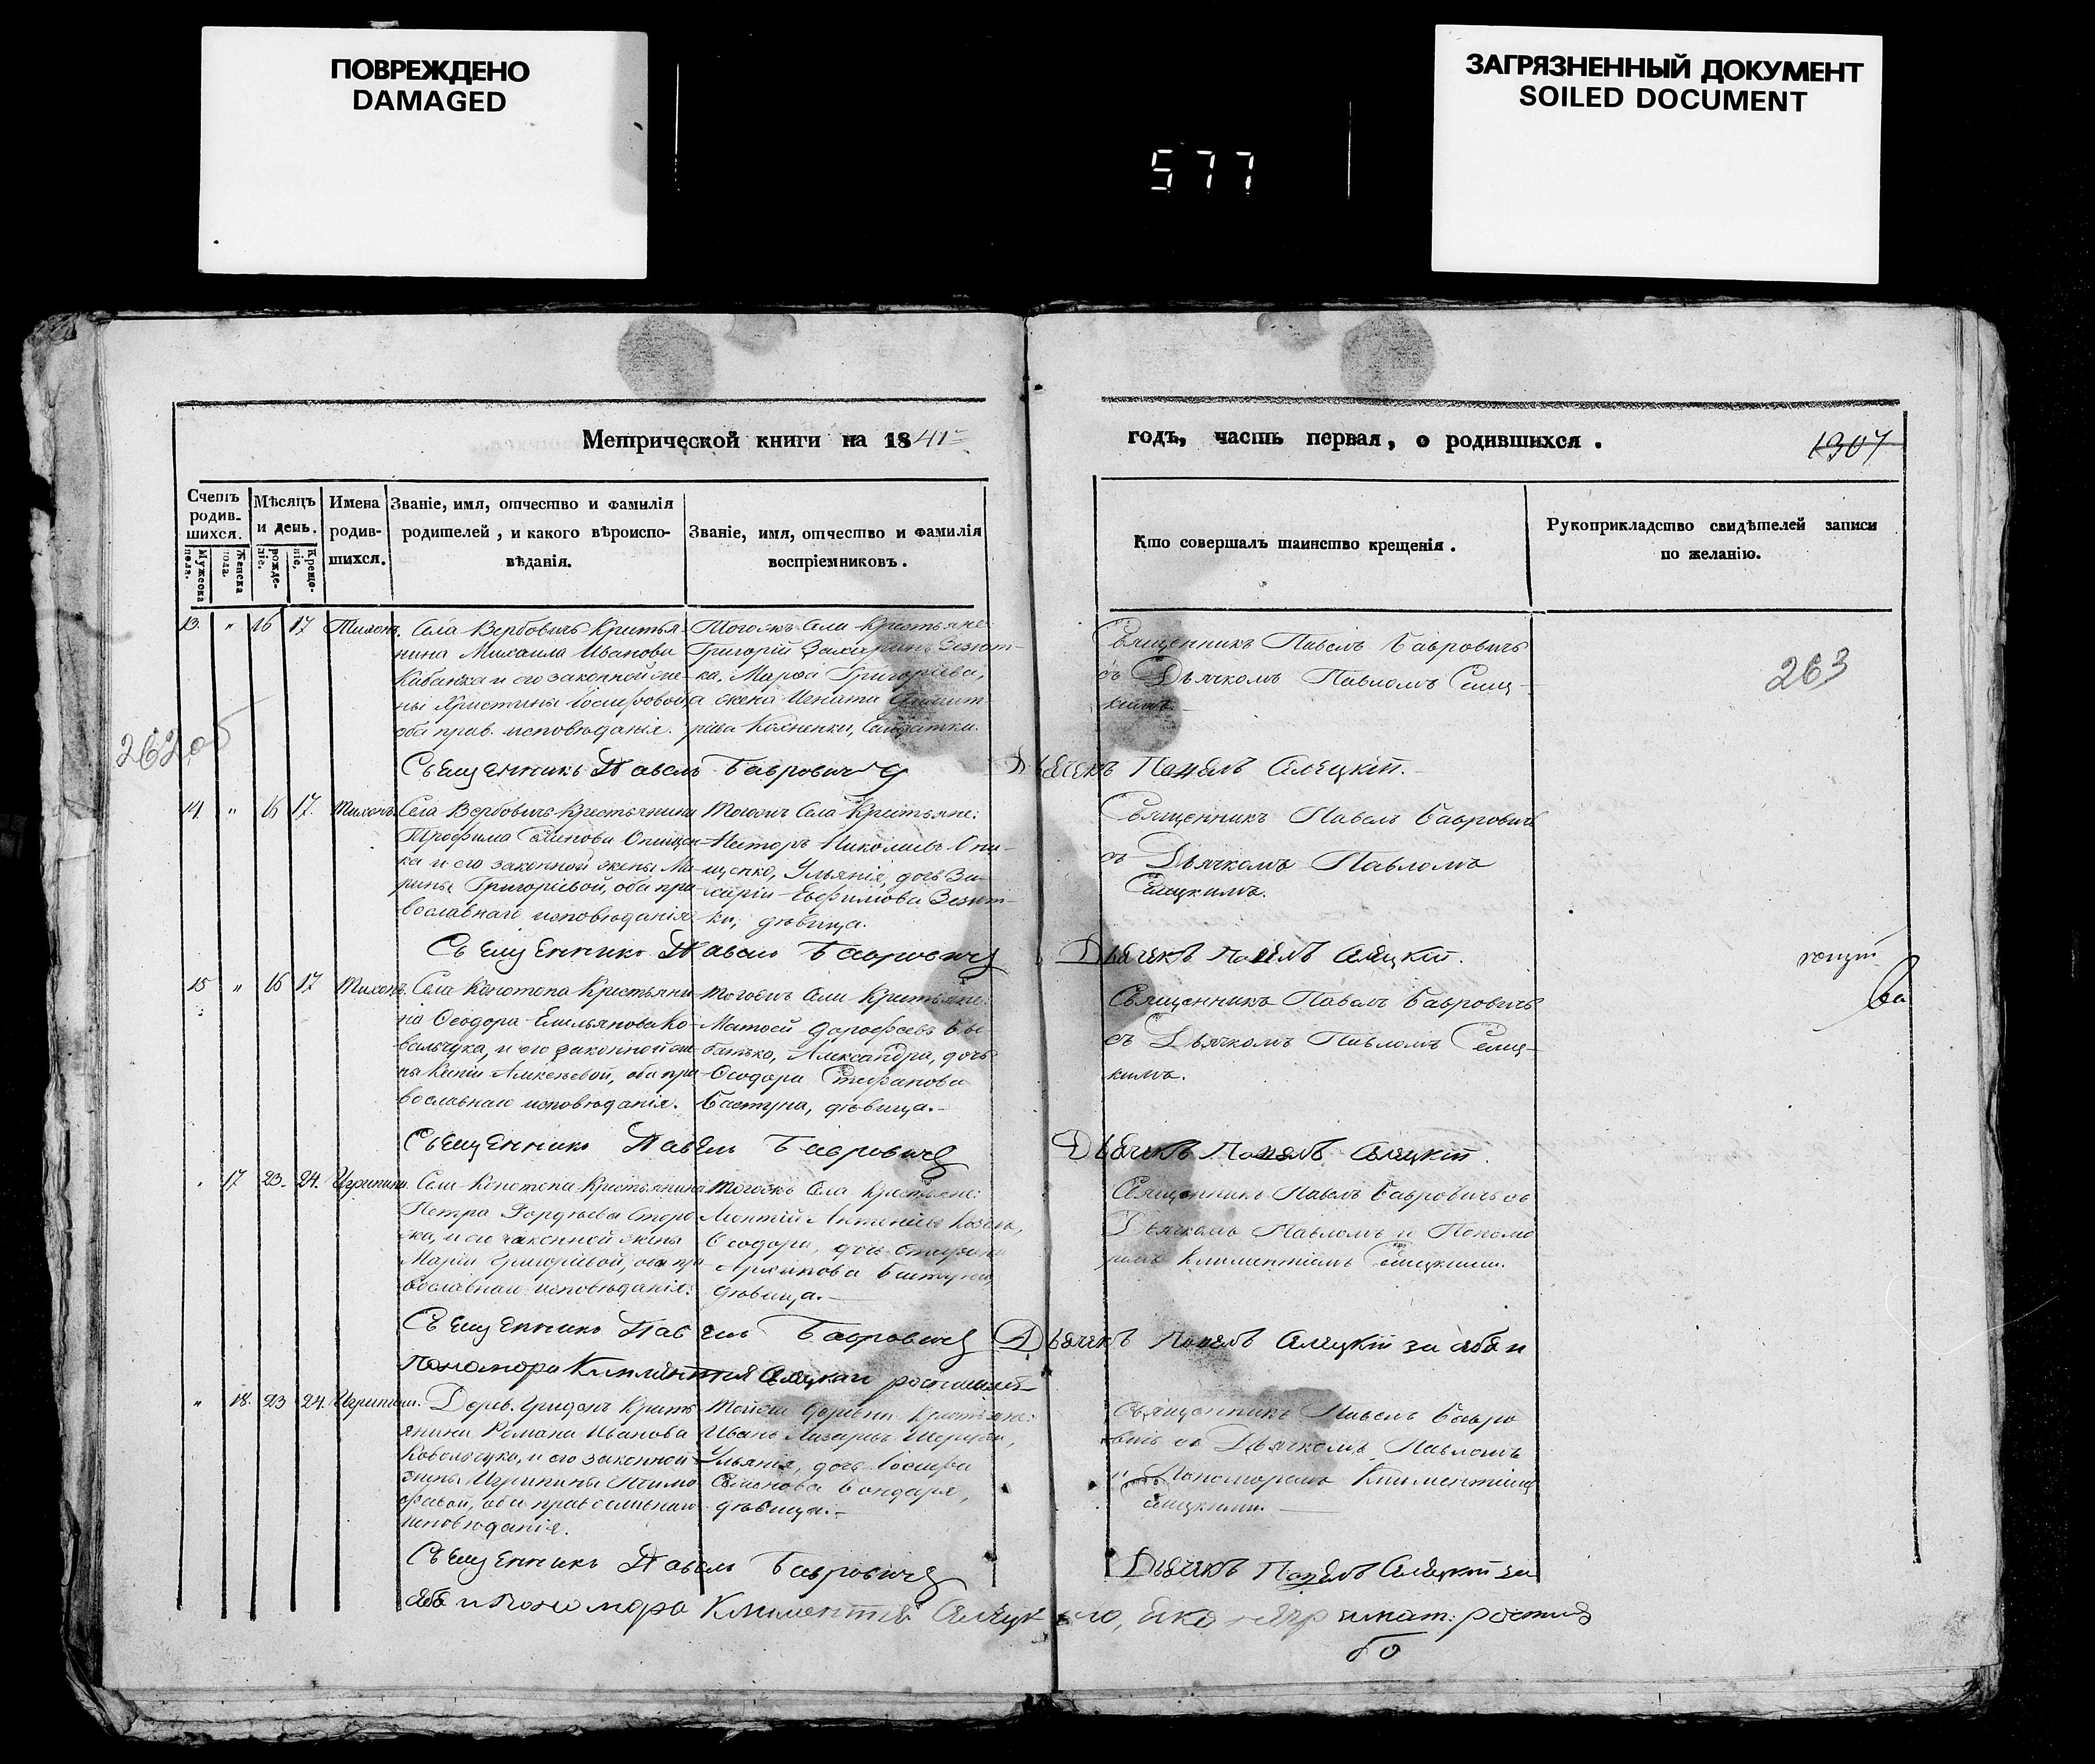 ПОВРЕЖДЕНО
DAMAGED
577
ЗАГРЯЗНЕННЫЙ ДОКУМЕНТ
SOILED DOCUMENT
Метрической книги на 1841
годъ, часть первая, о родившихся.
1307
Счетъ родившихся.
Мужеска пола.
Женска пола.
Мѣсяцъ и день.
рожденіе.
Крещеніе.
Имена родившихся.
Званіе, имя, отчество и фамилія
родителей, и какого вѣроиспо-
вѣданія.
Званіе, имя, отчество и фамилія
воспріемниковъ.
Кто совершалъ таинство крещенія.
Рукоприкладство свидѣтелей записи
по желанію.
263
262 об
13. " 16 17 Тихонъ.
Села Вербовичъ Крестья-
нина Михаила Иванова
и его законной же-
ны Христины Іосифовой
оба прав. исповѣданія.
Тогожъ Села Крестьяне:
Григорій
ка, Марѳа Григоріева,
жена Игната
Священникъ Павелъ Бавровичъ
съ Дьячкомъ Павломъ Селиц-
кимъ.
Священникъ Павелъ Бавровичъ
Дьячекъ Павелъ Селецкій.
14. " 16 17. Тихонъ.
Села Вербовичъ Крестьянина
Трофима Семенова Онищен-
ка и его законной жены Ма-
рины Григоріевой, оба пра-
вославнаго исповѣданія.
Тогожъ Села Крестьяне:
Несторъ Николаевъ Они-
щенко, Ульянія, дочь За-
харіи Евфимова
ки, дѣвица.
Священникъ Павелъ Бавровичъ
съ Дьячкомъ Павломъ
Селицкимъ.
Священникъ Павелъ Бавровичъ
Дьячекъ Павелъ Селецкій.
15 " 16 17 Тихонъ.
Села Конотопа Крестьяни-
на Ѳеодора Емельянова Ко-
вальчука, и его законной же-
ны Ксеніи Алексѣевой, оба пра-
вославнаго исповѣданія.
Тогожъ Села Крестьяне:
Матѳей Дорофеевъ
Александра, дочь
Ѳеодора Стефанова
Бастуна, дѣвица.
Священникъ Павелъ Бавровичъ
съ Дьячкомъ Павломъ Селиц-
кимъ.
Священникъ Павелъ Бавровичъ
Дьячекъ Павелъ Селецкій.
" 17 23. 24. Агрипина.
Села Конотопа Крестьянина
Петра Гордѣева Сторо-
жа, и его законной жены
Маріи Григоріевой, оба пра-
вославнаго исповѣданія.
Тогожъ Села Крестьяне:
Леонтій Антоніевъ
Ѳеодора, дочь Стефана
Архипова Бастуна,
дѣвица.
Священникъ Павелъ Бавровичъ съ
Дьячкомъ Павломъ и Понома-
ремъ Климентіемъ Селицкими.
Священникъ Павелъ Бавровичъ
Дьячекъ Павелъ Селецкій за себя и
Пономора Климентія Селецкаго росписался
" 18. 23 24. Агрипина.
Дерев. Кресть-
янина Романа Иванова
Ковальчука, и его законной
жены Агрипины Тимо-
феевой, оба православнаго
исповѣданія.
Тойже Деревни Крестьяне:
Иванъ Лазаревъ
Ульянія, дочь Іосифа
Семенова Бондаря,
дѣвица.
Священникъ Павелъ Бавро-
вичъ съ Дьячкомъ Павломъ
и Пономоремъ Климентіемъ
Селицкими.
Священникъ Павелъ Бавровичъ
Дьячекъ Павелъ Селецкій за
себя и Пономора Климентія Селецкаго,